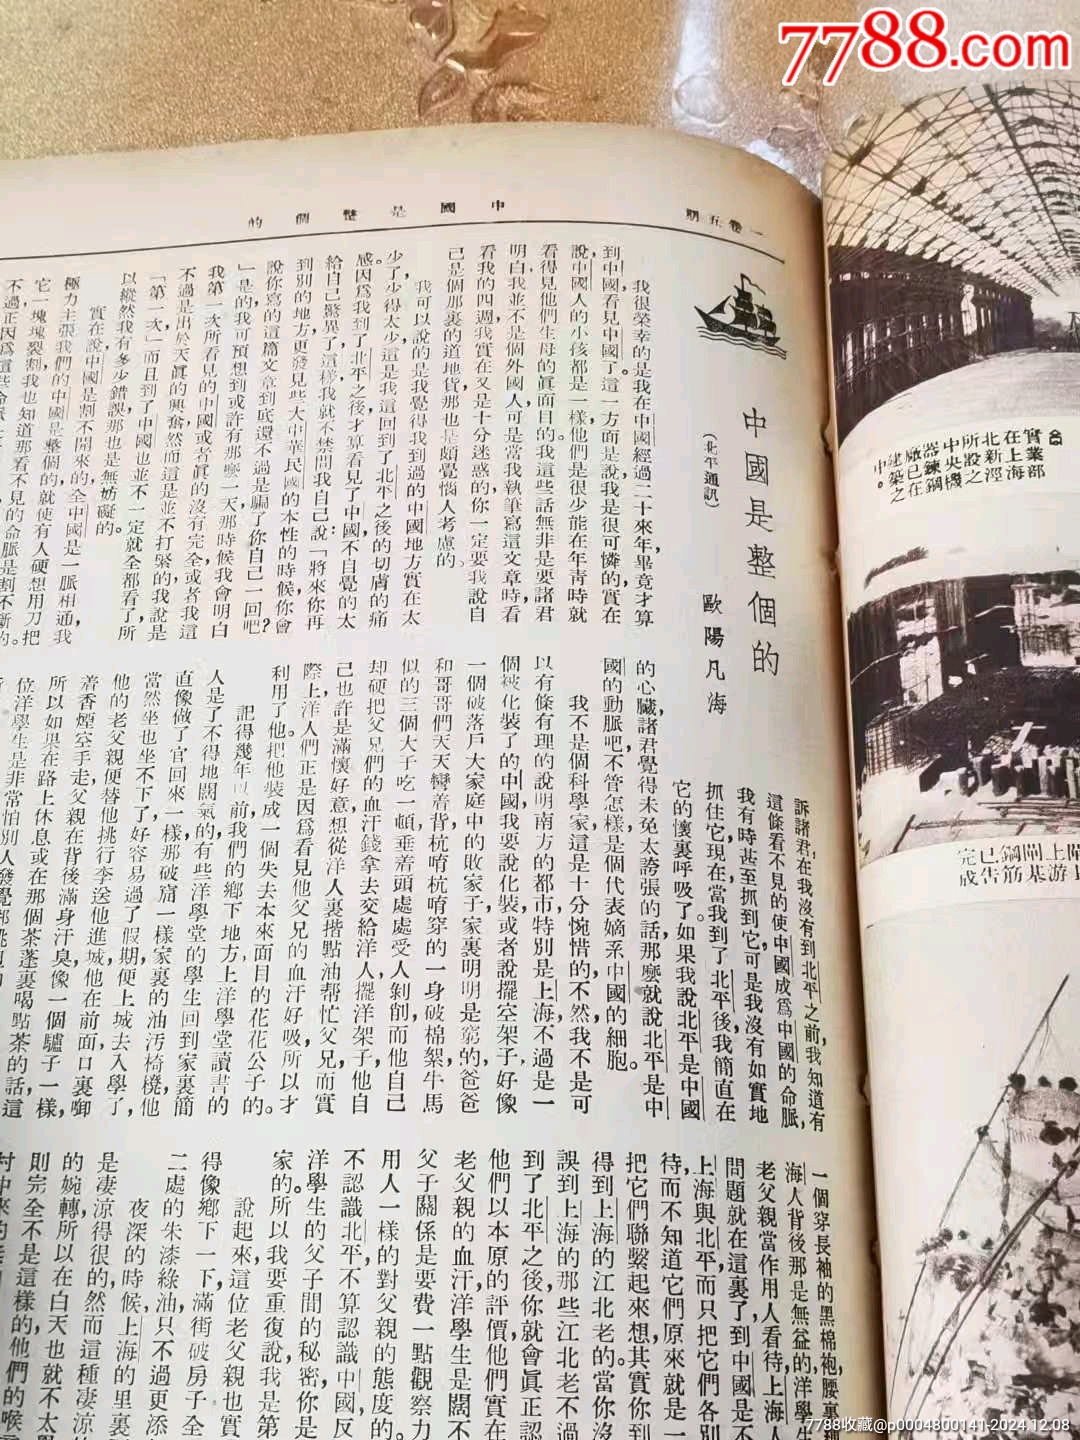 7788.com
中國是整個的
一卷五期
中國是整個的
(北平通訊)
歐陽凡海
我很榮幸的是我在中國經過二十來年畢竟才算
到中國看見中國了。這一方面是說我是很可憐的,實在
說中國人的小孩都是一樣,他們是很少能在年青時就
看得見他們生母的眞面目的。我這些話無非是要諸君
明白我並不是個外國人,可是當我執筆寫這文章時,看
看我的四週,我實在又是十分迷惑的,你一定要我說自
己是個那裏的道地貨,那也是頗覺惱人考慮的。
我可以說的是我覺得我到過的中國地方實在太
少了,少得太少,這是我這回到了北平之後的切膚的痛
感,因爲我到了北平之後才算看見了中國,不自覺的太
給自己驚異了,這樣我就不禁問我自己說:「將來你再
到別的地方更發見些大中華民國的本性的時候,你會
說你寫的這篇文章到底還不過是騙了你自己一回吧?
」是的,我可預想到或許有那麼一天,那時候我會明白
我第一次所看見的中國或者眞的沒有完全,或者我這
不過是出於天眞的興奮,然而這是並不打緊的,我說是
「第一次」,而且到了中國也並不一定就全都看了,所
以縱然我有多少錯誤,那也是無妨礙的。
實在說中國是割不開來的,全中國是一脈相通,我
極力主張我們的中國是整個的,就使有人硬想用刀把
它一塊塊裂割,我也知道那看不見的命脈是割不斷的。
訴諸君,在我沒有到北平之前,我知道有
這條看不見的使中國成爲中國的命脈,
我有時甚至抓到它,可是我沒有如實地
抓住它,現在當我到了北平後,我簡直在
它的懷裏呼吸了。如果我說北平是中國
的心臟,諸君覺得未免太誇張的話,那麼就說北平是中
國的動脈吧,不管怎樣是個代表嫡系中國的細胞。
我不是個科學家,這是十分惋惜的,不然我不是可
以有條有理的說明南方的都市,特別是上海,不過是一
個被化裝了的中國,我要說化裝或者說擺空架子,好像
一個破落戶大家庭中的敗家子,家裏明明是窮的,爸爸
和哥哥們天天彎着背,杭唷杭唷穿的一身破棉絮,牛馬
似的三個大子吃一頓,垂着頭處處受人剝削,而他自己
却硬把父兄們的血汗錢拿去交給洋人擺洋架子,他自
己也許是滿懷好意,想從洋人裏揩點油帮忙父兄,而實
際上,洋人們正是因爲看見他父兄的血汗好吸,所以才
利用了他,把他裝成一個失去本來面目的花花公子的。
記得幾年以前,我們的鄉下地方,上洋學堂讀書的
人是了不得地闊氣的,有些洋學堂的學生回到家裏簡
直像做了官回來一樣,那破窟一樣家裏的油汚椅櫈,他
當然坐也坐不下了,好容易過了假期便上城去入學了,
他的老父親便替他挑行李送他進城,他在前面口裏啣
着香煙空手走,父親在背後滿身汗臭,像一個驢子一樣,
所以如果在路上休息或在那個茶蓬裏喝點茶的話,這
位洋學生是非常怕別人發覺那挑
一個穿長袖的黑棉袍,腰裏
海人背後那是無益的,洋學生
老父親當作用人看待,上海人
問題就在這裏了,到中國是不
上海與北平,而只把它們各別
待,而不知道它們原來就是一
把它們聯繫起來想,其實你到
得到上海的江北老的。當你沒
誤到上海的那些江北老不過
到了北平之後,你就會眞正認
他們以本原的評價,他們實在
老父親的血汗,洋學生是闊不
父子關係是要費一點觀察力
用人一樣的對父親的態度的。
不認識北平,不算認識中國,反
洋學生的父子間的秘密,你是
家的。所以我要重復說,我是第
說起來,這位老父親也實
得像鄉下一下,滿街破房子,全
二處的朱漆綠油,只不過更添
夜深的時候,上海的里裏
是凄涼得很的,然而這種凄涼
的婉轉,所以在白天也就不太
則完全不是這樣的,他們的喉
實業部
在上海
北新涇
所設之
中央機
器鍊鋼
廠已在
建築之
中。
上游基
閘鋼筋
已告
完成
7788收藏@p0004800141-2024.12.08